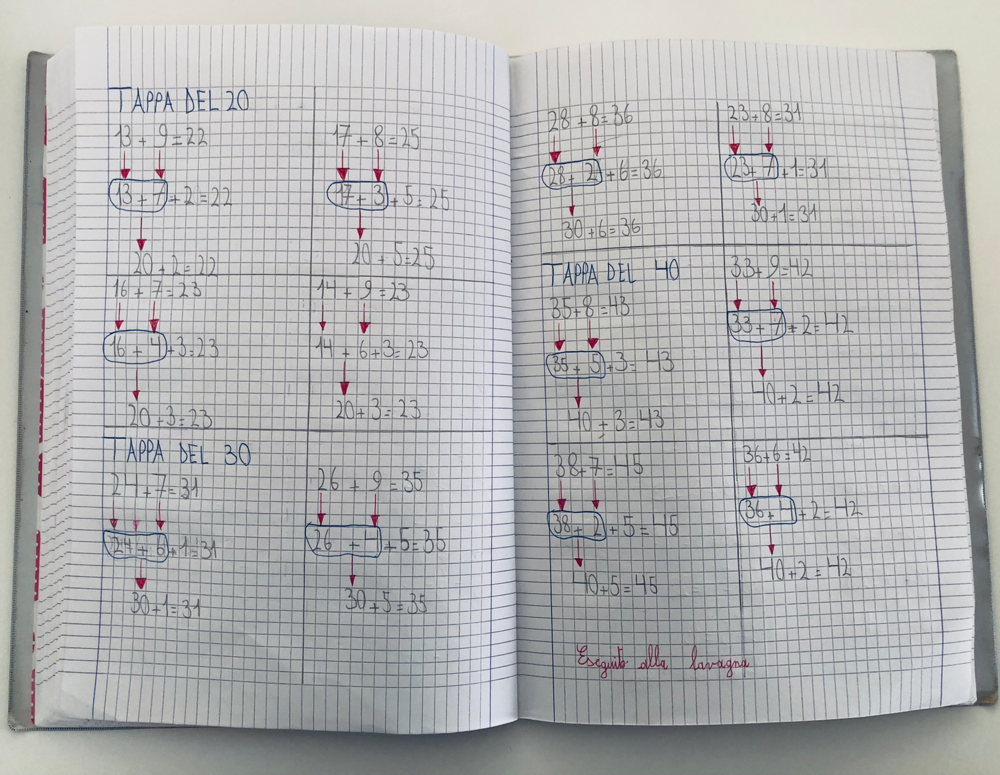 TAPPA DEL 20
13 + 9 = 22
13 + 7 + 2 = 22
20 + 2 = 22
17 + 8 = 25
17 + 3 + 5 = 25
20 + 5 = 25
16 + 7 = 23
16 + 4 + 3 = 23
20 + 3 = 23
14 + 9 = 23
14 + 6 + 3 = 23
20 + 3 = 23
TAPPA DEL 30
24 + 7 = 31
24 + 6 + 1 = 31
30 + 1 = 31
26 + 9 = 35
26 + 4 + 5 = 35
30 + 5 = 35
28 + 8 = 36
28 + 2 + 6 = 36
30 + 6 = 36
23 + 8 = 31
23 + 7 + 1 = 31
30 + 1 = 31
TAPPA DEL 40
35 + 8 = 43
35 + 5 + 3 = 43
40 + 3 = 43
33 + 9 = 42
33 + 7 + 2 = 42
40 + 2 = 42
38 + 7 = 45
38 + 2 + 5 = 45
40 + 5 = 45
36 + 6 = 42
36 + 4 + 2 = 42
40 + 2 = 42
Eseguito alla lavagna